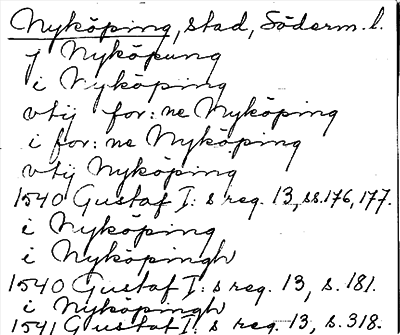 Nyköping, stad, Söderm. l.
j Nyköpung
i Nyköping
vtij for:ne Nyköping
i for:ne Nyköping
vtij Nyköping
1540 Gustaf I:s reg. 13, ss. 176, 177.
i Nyköping
i Nyköpingh
1540 Gustaf I:s reg. 13, s. 181.
i Nyköpingh
1541 Gustaf I:s reg. 13, s. 318.